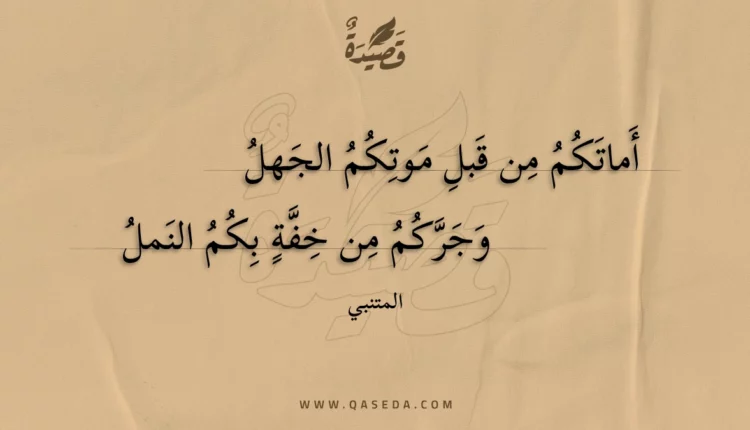 قَصِيْدَةٌ
أَماتَكُمُ مِن قَبلِ مَوتِكُمُ الجَهلُ
وَجَرَّكُمُ مِن خِفَّةٍ بِكُمُ النَملُ
المتنبي
WWW.QASEDA.COM